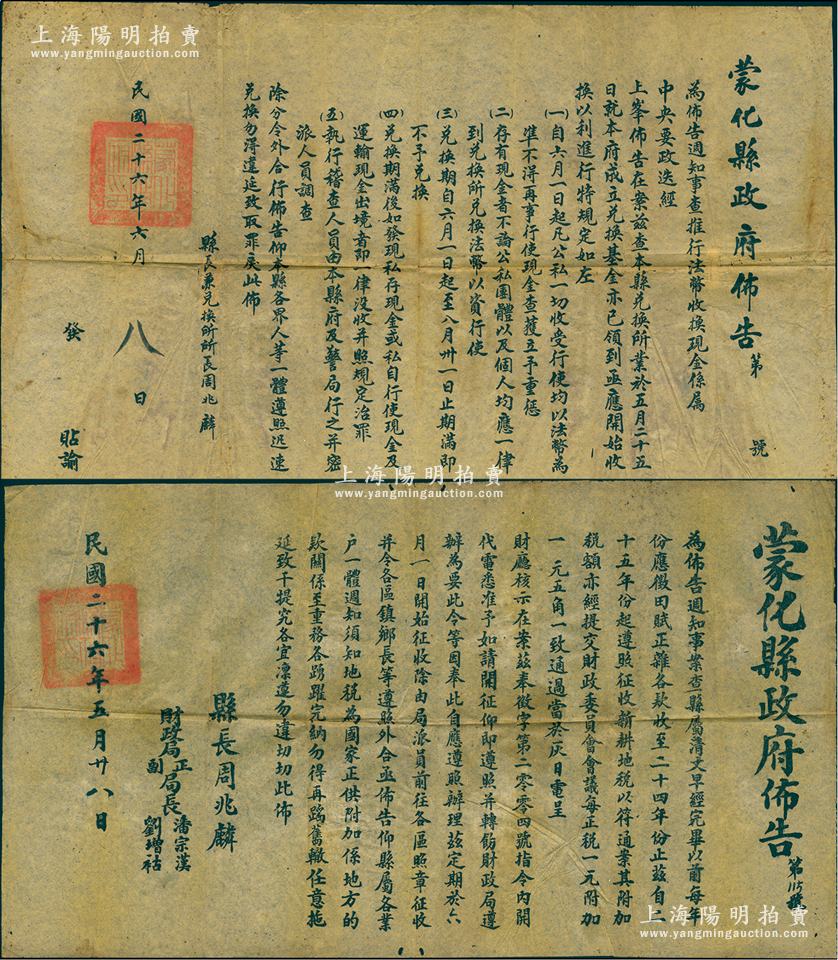 上海陽明拍賣
www.yangmingauction.com
蒙化縣政府佈告 第 號
為佈告週知事查推行法幣收換現金係屬
中央要政迭經
上峯佈告在案茲查本縣兌換所業於五月二十五
日就本府成立兌換基金亦已領到亟應開始收
換以利進行特規定如左
(一)自六月一日起凡公私一切收受行使均以法幣為
準不得再事行使現金查獲立予重懲
(二)存有現金者不論公私團體以及個人均應一律
到兌換所兌換法幣以資行使
(三)兌換期自六月一日起至八月卅一日止期滿即
不予兌換
(四)兌換期滿後如發現私存現金或私自行使現金及
運輸現金出境者即一律沒收并照規定治罪
(五)執行稽查人員由本縣府及警局行之并密
派人員調查
除分令外合行佈告仰本縣各界人等一體遵照迅速
兌換勿得違延致取罪戾此佈
縣長兼兌換所所長周兆麟
民國二十六年六月 八 日
發 貼諭
上海陽明拍賣
www.yangmingauction.com
蒙化縣政府佈告 第115號
為佈告週知事案查縣屬清丈早經完畢以前每年
份應徵田賦正雜各款收至二十四年份止茲自二
十五年份起遵照征收新耕地稅以符通案其附加
稅額亦經提交財政委員會會議每正稅一元附加
一元五角一致通過當於灰日電呈
財廳核示在案茲奉徵字第二零零四號指令內開
代電悉准予如請開征仰即遵照并轉飭財政局遵
辦為要此令等因奉此自應遵照辦理茲定期於六
月一日開始征收除由局派員前往各區照章征收
并令各區鎮鄉長等遵照外合亟佈告仰縣屬各業
戶一體週知須知地稅為國家正供附加係地方的
款關係至重務各踴躍完納勿得再蹈舊轍任意拖
延致干提究各宜凜遵勿違切切此佈
縣長周兆麟
財政局正副局長潘宗漢 劉增祜
民國二十六年五月廿八日
上海陽明拍賣
www.yangmingauction.com